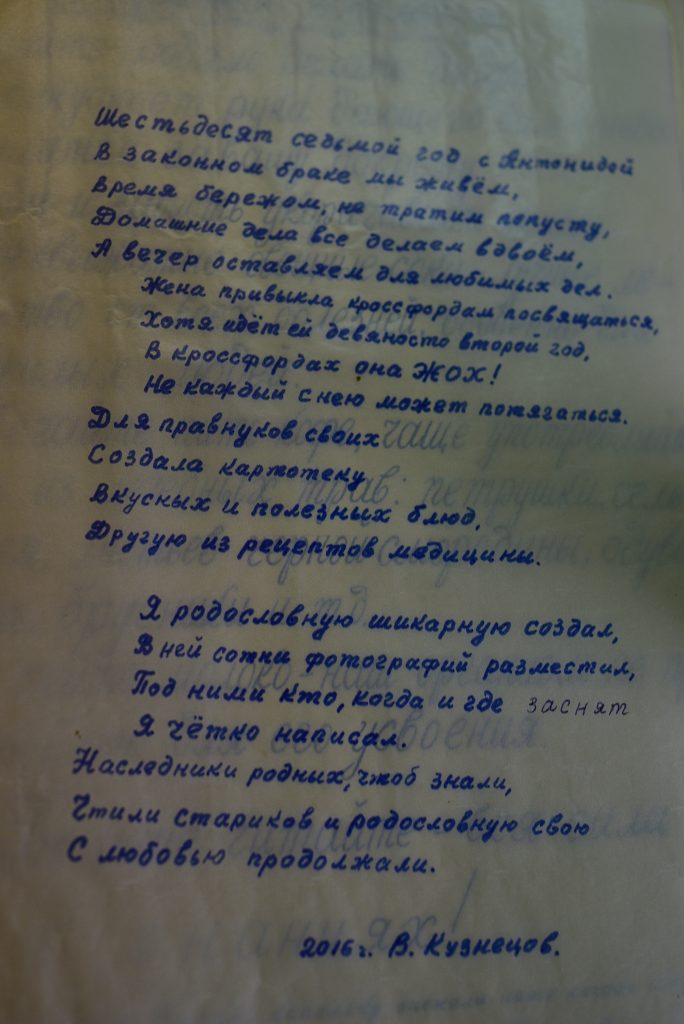 Шестьдесят седьмой год с Антонидой
В законном браке мы живём,
Время бережом, не тратим попусту,
Домашние дела все делаем вдвоём,
А вечер оставляем для любимых дел.
Жена привыкла кроссфордам посвящаться,
Хотя идёт ей девяносто второй год,
В кроссфордах она ЖОХ!
Не каждый с нею может потягаться.
Для правнуков своих
Создала картотеку
Вкусных и полезных блюд,
Другую из рецептов медицины.
Я родословную шикарную создал,
В ней сотни фотографий разместил,
Под ними кто, когда и где заснят
Я чётко написал.
Наследники родных, чтоб знали,
Чтили стариков и родословную свою
С любовью продолжали.
2016 г. В. Кузнецов.